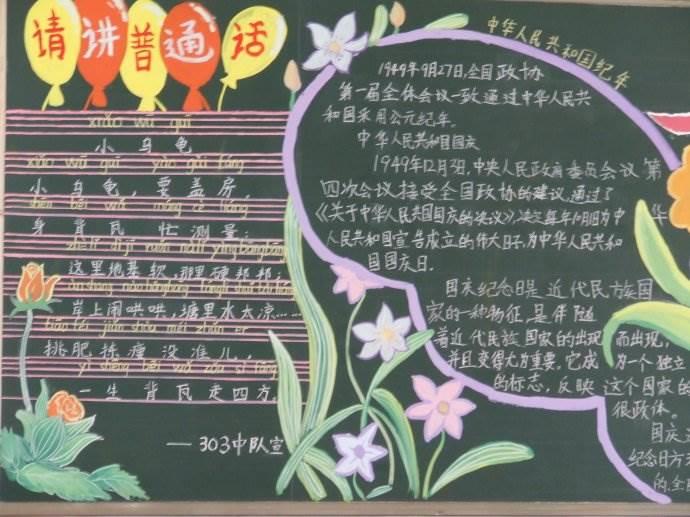 请讲普通话
xiǎo wū guī
小乌龟
xiǎo wū guī yào gài fáng
小乌龟,要盖房,
身背瓦忙测量;
这里地基软,那里硬邦邦;
岸上闹哄哄,塘里水太凉……
挑肥拣瘦没准儿,
一生背瓦走四方。
——303中队宣
中华人民共和国纪年
1949年9月27日,全国政协
第一届全体会议一致通过中华人民共
和国采用公元纪年。
中华人民共和国国庆
1949年12月3日,中央人民政府委员会议第
四次会议接受全国政协的建议,通过了
《关于中华人民共和国国庆的决议》,决定每年10月1日为中华
人民共和国宣告成立的伟大日子,为中华人民共和
国国庆日。
国庆纪念日是近代民族国
家的一种特征,是伴随
着近代民族国家的出现而出现,
并且变得尤为重要。它成为一个独立
的标志,反映这个国家的
很政体。
国庆
纪念日方
的,全